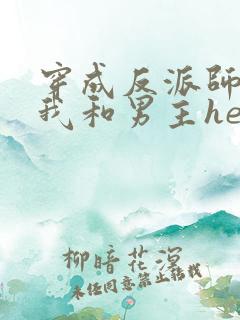 穿成反派師
我和男主he
柳暗花溟
未经同意禁止转载